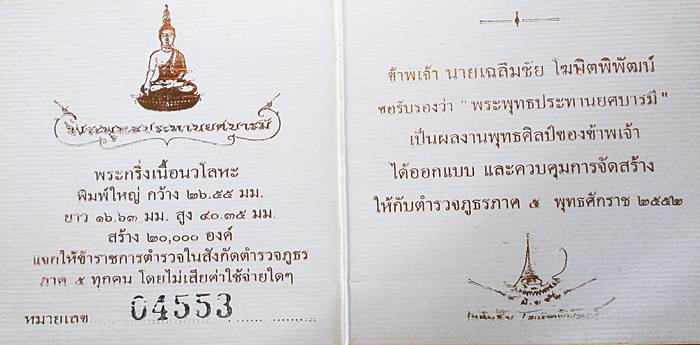 พระพุทธประทานยศบารมี
พระกริ่งเนื้อนวโลหะ
พิมพ์ใหญ่ กว้าง ๒๖.๕๕ มม.
ยาว ๑๖.๖๓ มม. สูง ๔๐.๓๕ มม.
สร้าง ๒๐,๐๐๐ องค์
แจกให้ข้าราชการตำรวจในสังกัดตำรวจภูธร
ภาค ๕ ทุกคน โดยไม่เสียค่าใช้จ่ายใดๆ
หมายเลข 04553
ข้าพเจ้า นายเฉลิมชัย โฆษิตพิพัฒน์
ขอรับรองว่า "พระพุทธประทานยศบารมี"
เป็นผลงานพุทธศิลป์ของข้าพเจ้า
ได้ออกแบบ และควบคุมการจัดสร้าง
ให้กับตำรวจภูธรภาค ๕ พุทธศักราช ๒๕๕๒